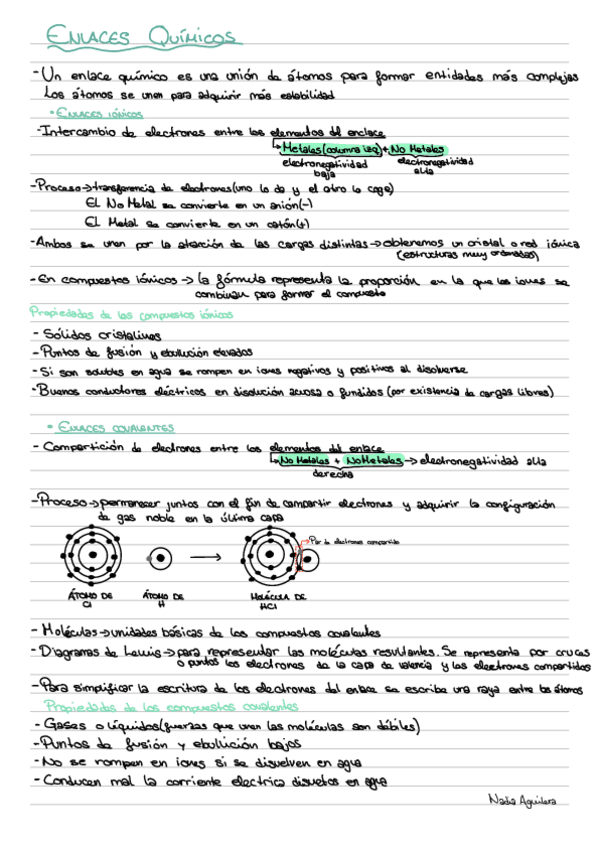 ENLACES QUÍMICOS
- Un enlace químico es una unión de átomos para formar entidades más complejas
Los átomos se unen para adquirir más estabilidad
• ENLACES IÓNICOS
- Intercambio de electrones entre los elementos del enlace
↳ Metales (columna izq) + No Metales
electronegatividad baja electronegatividad alta
- Proceso → transferencia de electrones (uno lo da y el otro lo coge)
El No Metal se convierte en un anión (-)
El Metal se convierte en un catón (+)
- Ambos se unen por la atracción de las cargas distintas → obtenemos un cristal o red iónica
(estructuras muy ordenadas)
- En compuestos iónicos → la fórmula representa la proporción en la que los iones se
combinan para formar el compuesto
Propiedades de los compuestos iónicos
- Sólidos cristalinos
- Puntos de fusión y ebullución elevados
- Si son solubles en agua se rompen en iones negativos y positivos al disolverse
- Buenos conductores eléctricos en disolución acuosa o fundidos (por existencia de cargas libres)
• ENLACES COVALENTES
- Compartición de electrones entre los elementos del enlace
↳ No Metales + No Metales → electronegatividad alta
derecha
- Proceso → permanecer juntos con el fin de compartir electrones y adquirir la configuración
de gas noble en la última capa
→ Par de electrones compartido
ÁTOMO DE Cl ÁTOMO DE H MOLÉCULA DE HCl
- Moléculas → unidades básicas de los compuestos covalentes
- Diagramas de Lewis → para representar las moléculas resultantes. Se representa por cruces
o puntos los electrones de la capa de valencia y los electrones compartidos
- Para simplificar la escritura de los electrones del enlace se escribe una raya entre los átomos
Propiedades de los compuestos covalentes
- Gases o líquidos (fuerzas que unen las moléculas son débiles)
- Puntos de fusión y ebullición bajos
- No se rompen en iones si se disuelven en agua
- Conducen mal la corriente electrica disueltos en agua
Nadia Aguilera